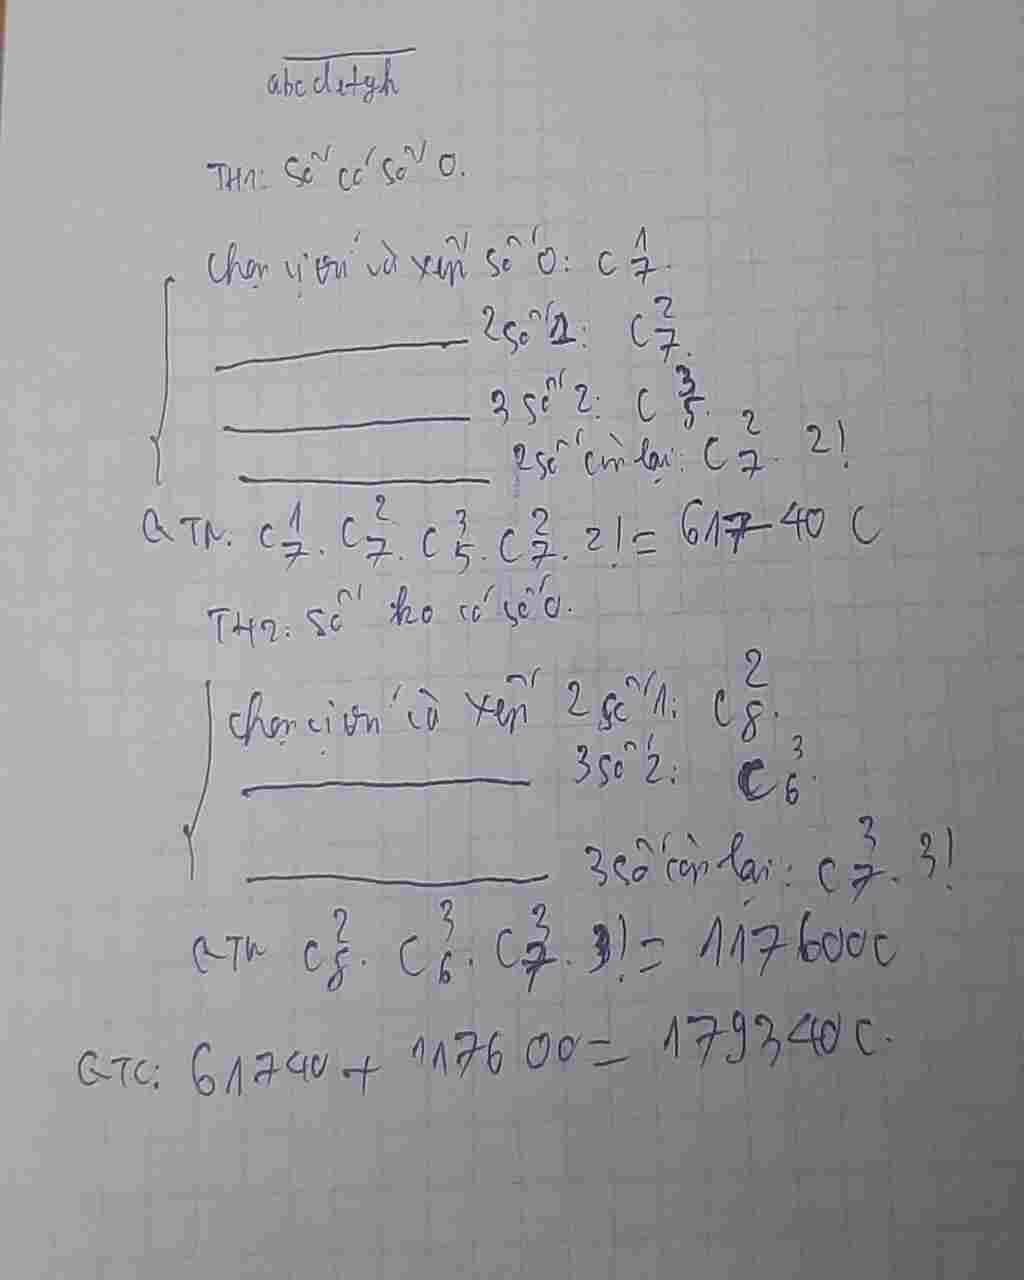 abcdefgh
TH1: Số có số 0.
Chọn vị trí và xếp số 0: C 1 7.
2 số 1: C 2 7.
3 số 2: C 3 5.
2 số còn lại: C 2 7. 2!
C 1 7. C 2 7. C 3 5. C 2 7. 2! = 61740 C
TH2: Số ko có số 0.
Chọn vị trí và xếp 2 số 1: C 2 8.
3 số 2: C 3 6.
3 số còn lại: C 3 7. 3!
C 2 8. C 3 6. C 3 7. 3! = 117600 C
61740 + 117600 = 179340 C.